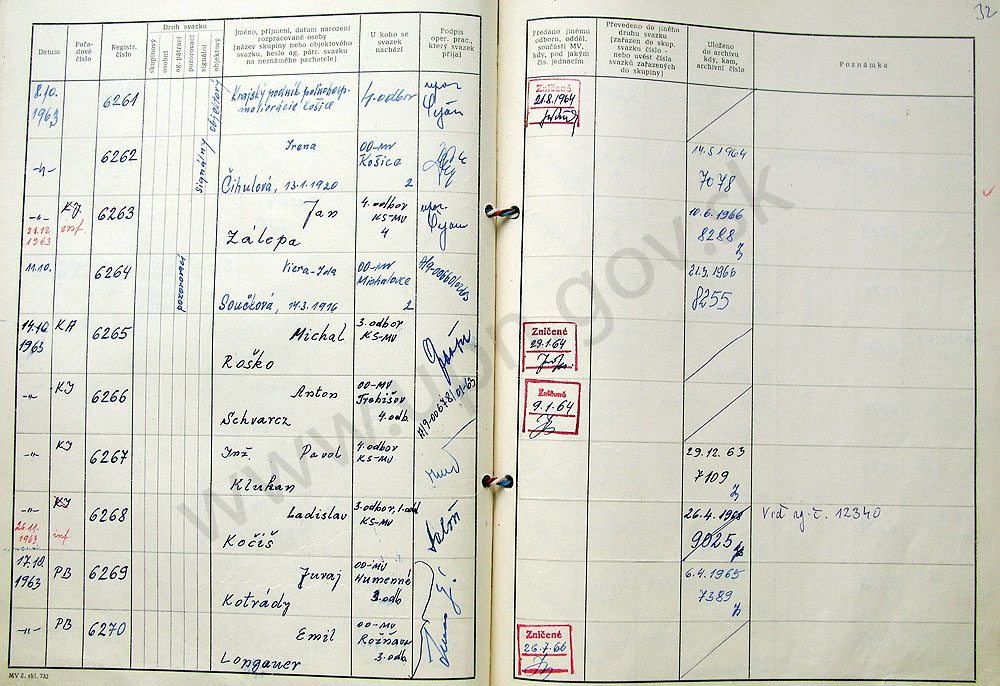 32
Datum
Pořadové číslo
Registr. číslo
Druh svazku
skupinový
osobní
ag. pátrací
pozorovací
signální
objektový
Jméno, příjmení, datum narození
rozpracované osoby
(název skupiny nebo objektového
svazku, heslo ag. pátr. svazku
na neznámého pachatele)
U koho se
svazek
nachází
Podpis
oper. prac.,
který svazek
přijal
Předáno jinému
odborn. odděl.
součásti MV,
kdy, pod jakým
čís. jednacím
Převedeno do jiného
druhu svazku
(zařazen do skup.
svazku číslo -
nebo uvést čísla
svazků zařazených
do skupiny)
Uloženo
do archivu
kdy, kam,
archivní číslo
Poznámka
8.10.
1963
6261
objektový
Krajský podnik
meliorácie Košice
4. odbor
Zničené
21.8.1964
-„-
6262
signálny
Irena
Čihulová, 13.1.1920
OO-MV
Košice
2
14.5.1964
7078
-„-
21.12.
1963
KI
inf.
6263
Jan
Zálepa
4. odbor
KS-MV
4
10.6.1966
8288
11.10.
6264
pozorovací
Viera-Ida
Součková, 14.3.1916
OO-MV
Michalovce
2
21.9.1966
8255
14.10.
1963
KA
6265
Michal
Roško
3. odbor
KS-MV
Zničené
29.1.64
-„-
KI
6266
Anton
Schvarcz
OO-MV
Trebišov
4. odb.
Zničené
9.1.64
-„-
KI
6267
Inž. Pavol
Klukan
4. odbor
KS-MV
29.12.63
7109
-„-
26.11.
1963
KI
inf.
6268
Ladislav
Kočiš
3. odbor, 1. odd.
KS-MV
26.4.1968
9025
Viď. ĺ. č. 12340
17.10.
1963
PB
6269
Juraj
Kotrády
OO-MV
Humenné
3. odb
6.4.1965
7389
-„-
PB
6270
Emil
Longauer
OO-MV
Rožňava
3. odb.
Zničené
26.7.66
MV č. skl. 732
www.upn.gov.sk